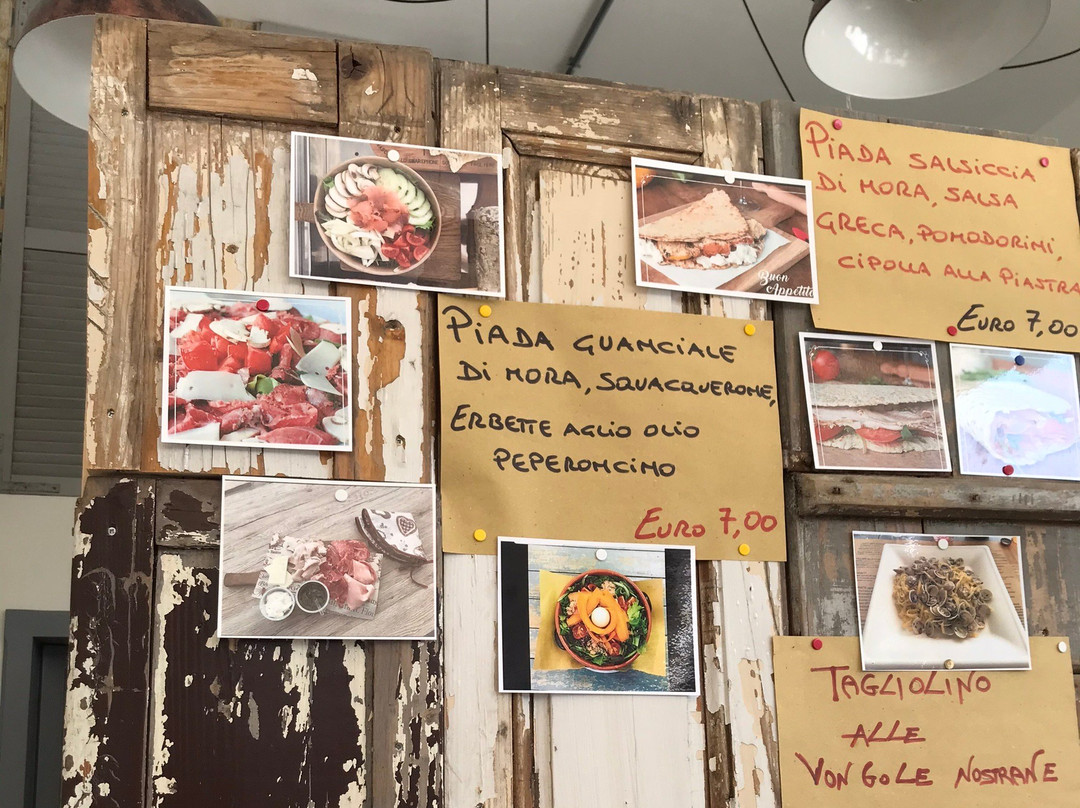 PIADA SALSICCIA
DI MORA, SALSA
GRECA, POMODORINI,
CIPOLLA ALLA PIASTRA
EURO 7,00
Buon
Appetito
PIADA GUANCIALE
DI MORA, SQUACQUERONE,
ERBETTE AGLIO OLIO
PEPERONCINO
EURO 7,00
TAGLIOLINO
ALLE
VONGOLE NOSTRANE